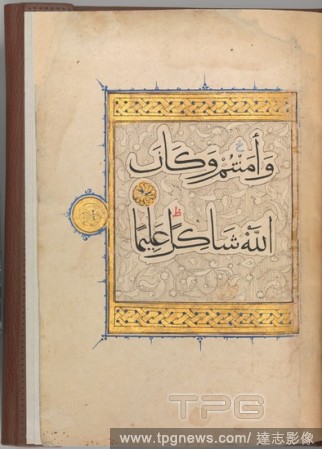 وَأَمَنْتُمْ وَكَانَ
اللَّهُ شَاكِرًا عَلِيمًا
TPG
www.tpgnews.com/ 達志影像